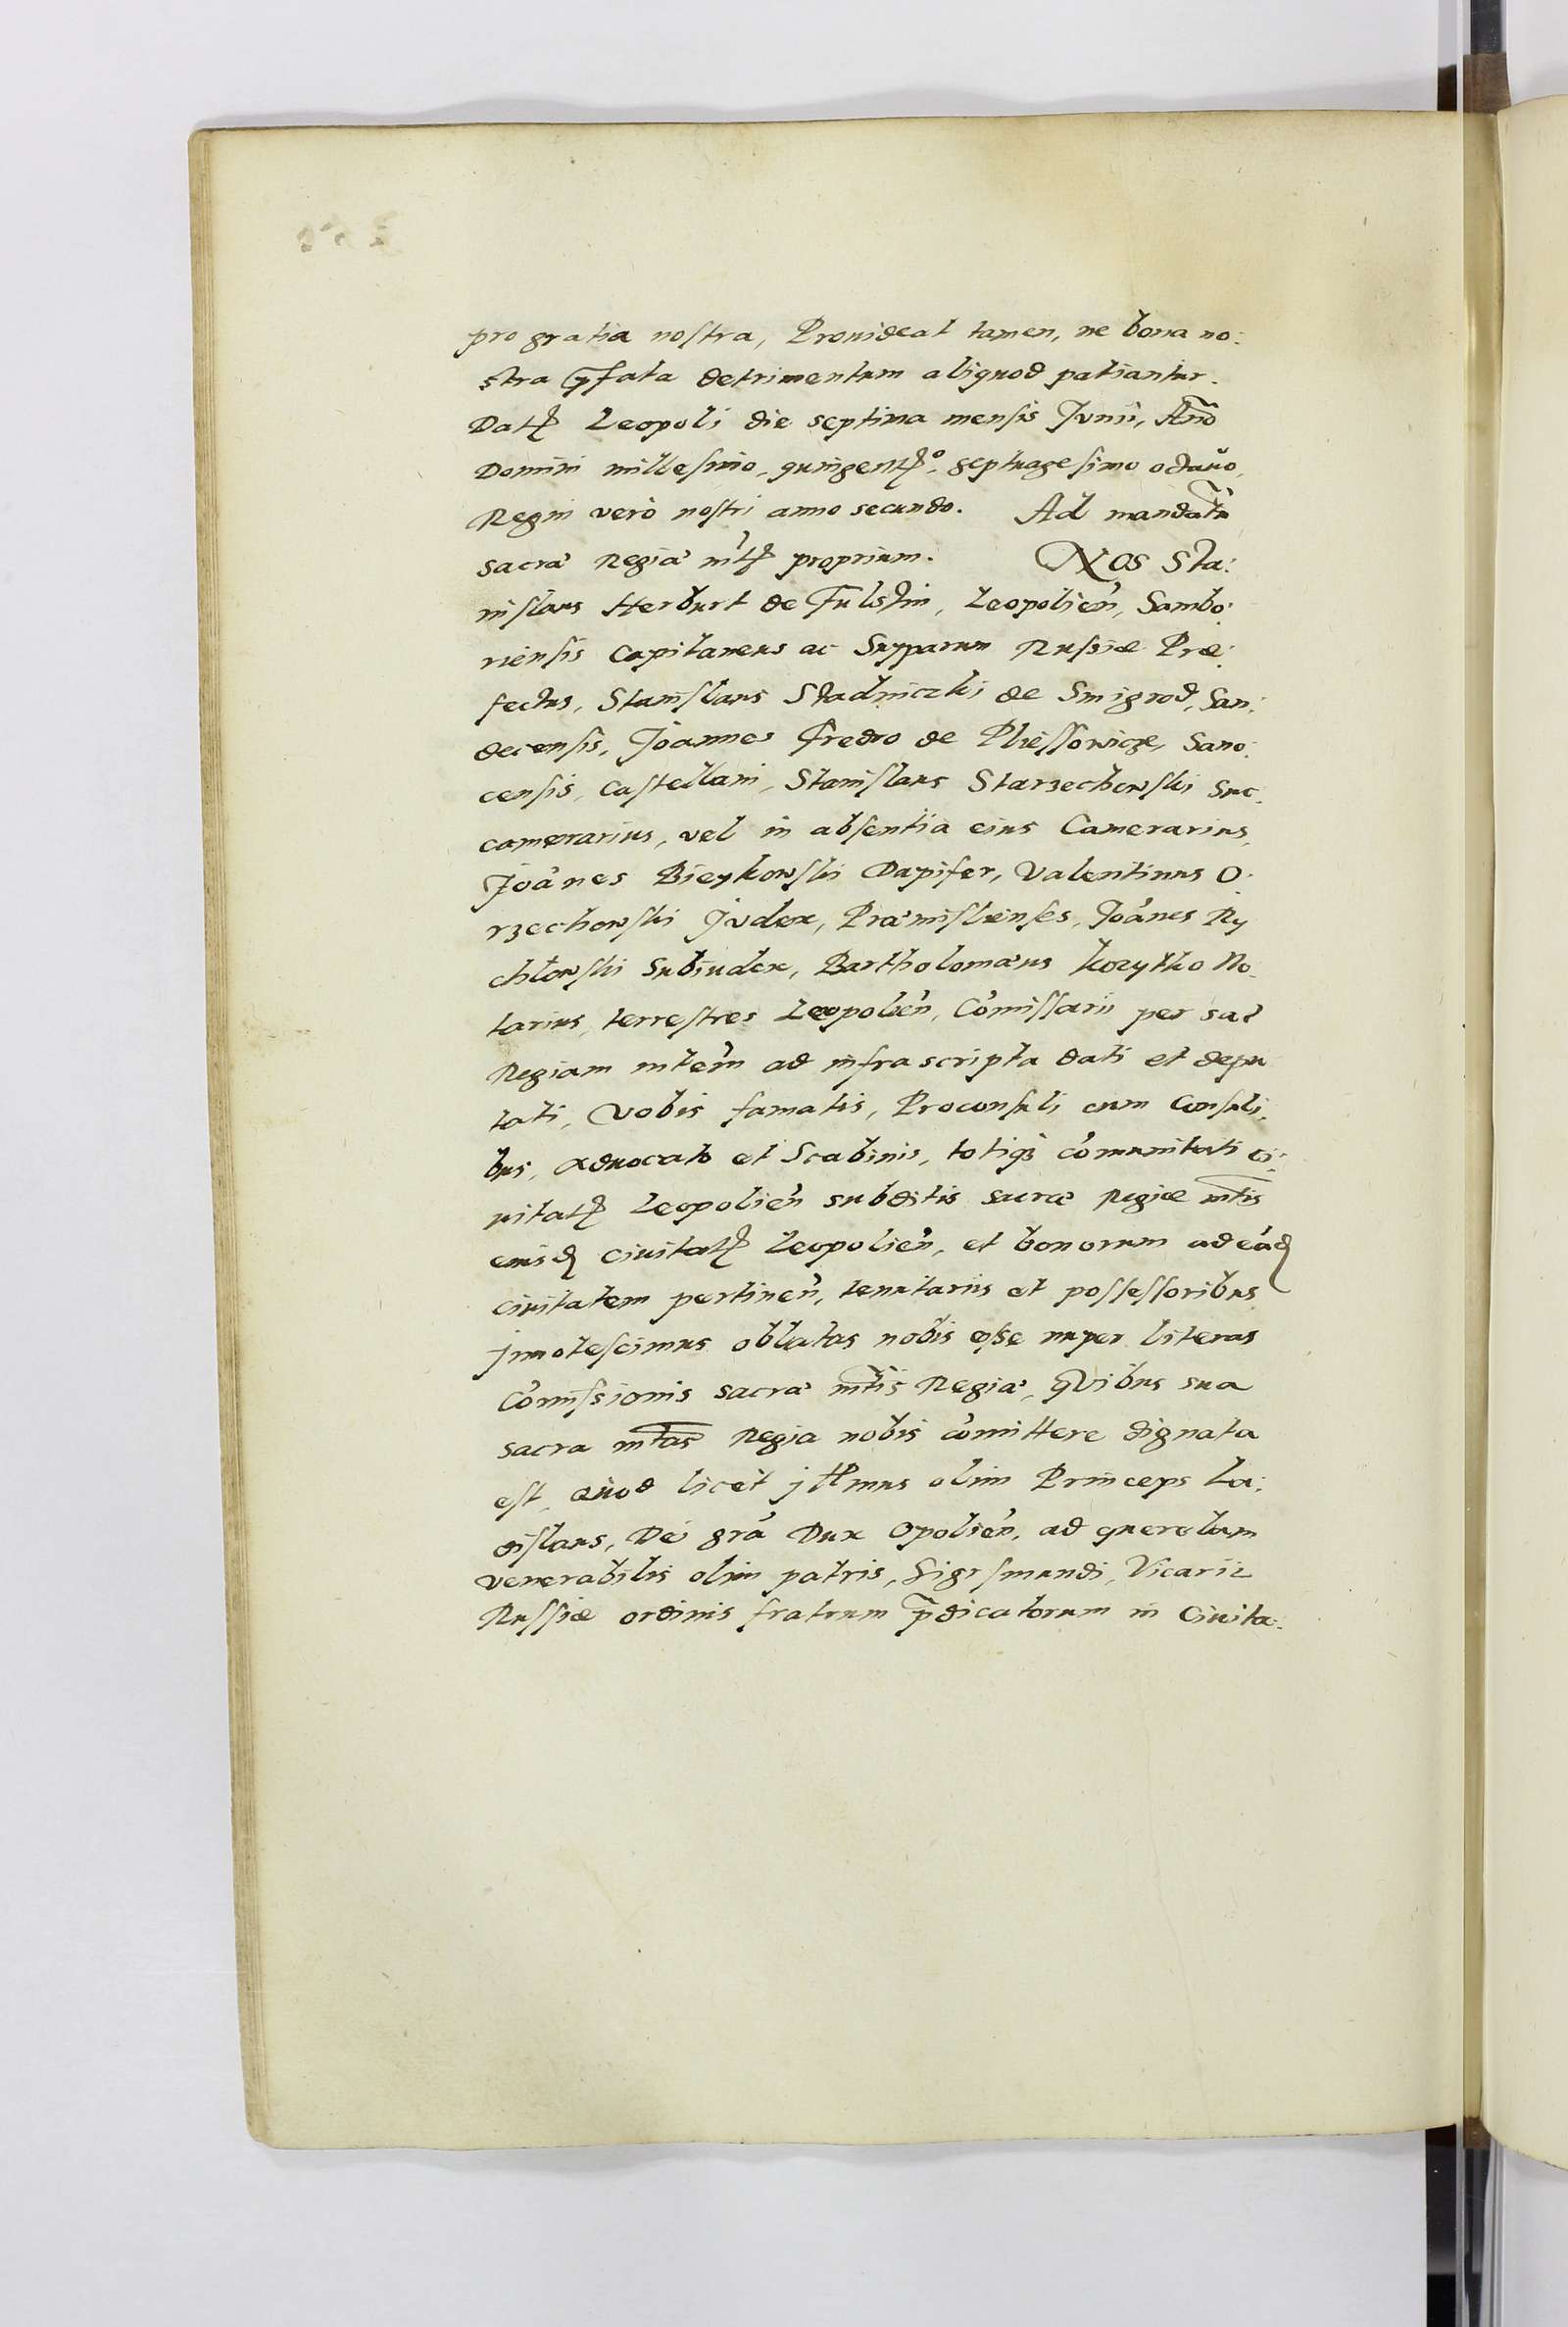 pro gratia nostra, Prouideat tamen, ne bona no:
stra p̃fata detrimentum aliquod patiantur.
Datꝭ Leopoli die septima mensis Junii, Año
Domini millesimo, quingentꝭº, septuagesimo octauo,
Regni verò nostri anno secundo. Ad mandatũ
sacræ Regiæ mtꝭ proprium. NOS Sta:
nislaus Herburt de Fulstin, Leopolień, Sambo:
riensis Capitaneus ac Supparum Russiæ Præ:
fectus, Stanislaus Stadniczki de Smigrod, San:
decensis, Joannes Fredro de Pliessowicze, Sano:
censis, Castellani, Stanislaus Starzechowski Suc:
camerarius, vel in absentia eius Camerarius,
Joańes Bieykowski Dapifer, Valentinus O:
rzechowski Judex, Præmislienses, Joańes Ry
chlowski Subiudex, Bartholomæus Kozytko No:
tarius, terrestres Leopolień, Cómissarii per sac̃
Regiam mtem̃ ad infrascripta dati et depu
tati, Vobis famatis, Proconsuli cum Consuli:
bus, aduocato et Scabinis, totiqȝ cómunitati ci:
uitatꝭ Leopolień subditis sacræ Regiæ mtis
eiusd ciuitatꝭ Leopolień, et bonorum ad eád
ciuitatem pertineń, tenutariis et possessoribus
jnnotescimus oblatas nobis esse nuper literas
Cómissionis sacræ mtis Regiæ, quibus sua
sacra mtas Regia nobis cómittere dignata
est, quod licet jllmus olim Princeps La:
dislaus, Dei grá Dux Opolień, ad querelam
venerabilis olim patris, Sigismundi, Vicarii
Russiæ ordinis fratrum p̃dicatorum in Ciuita: